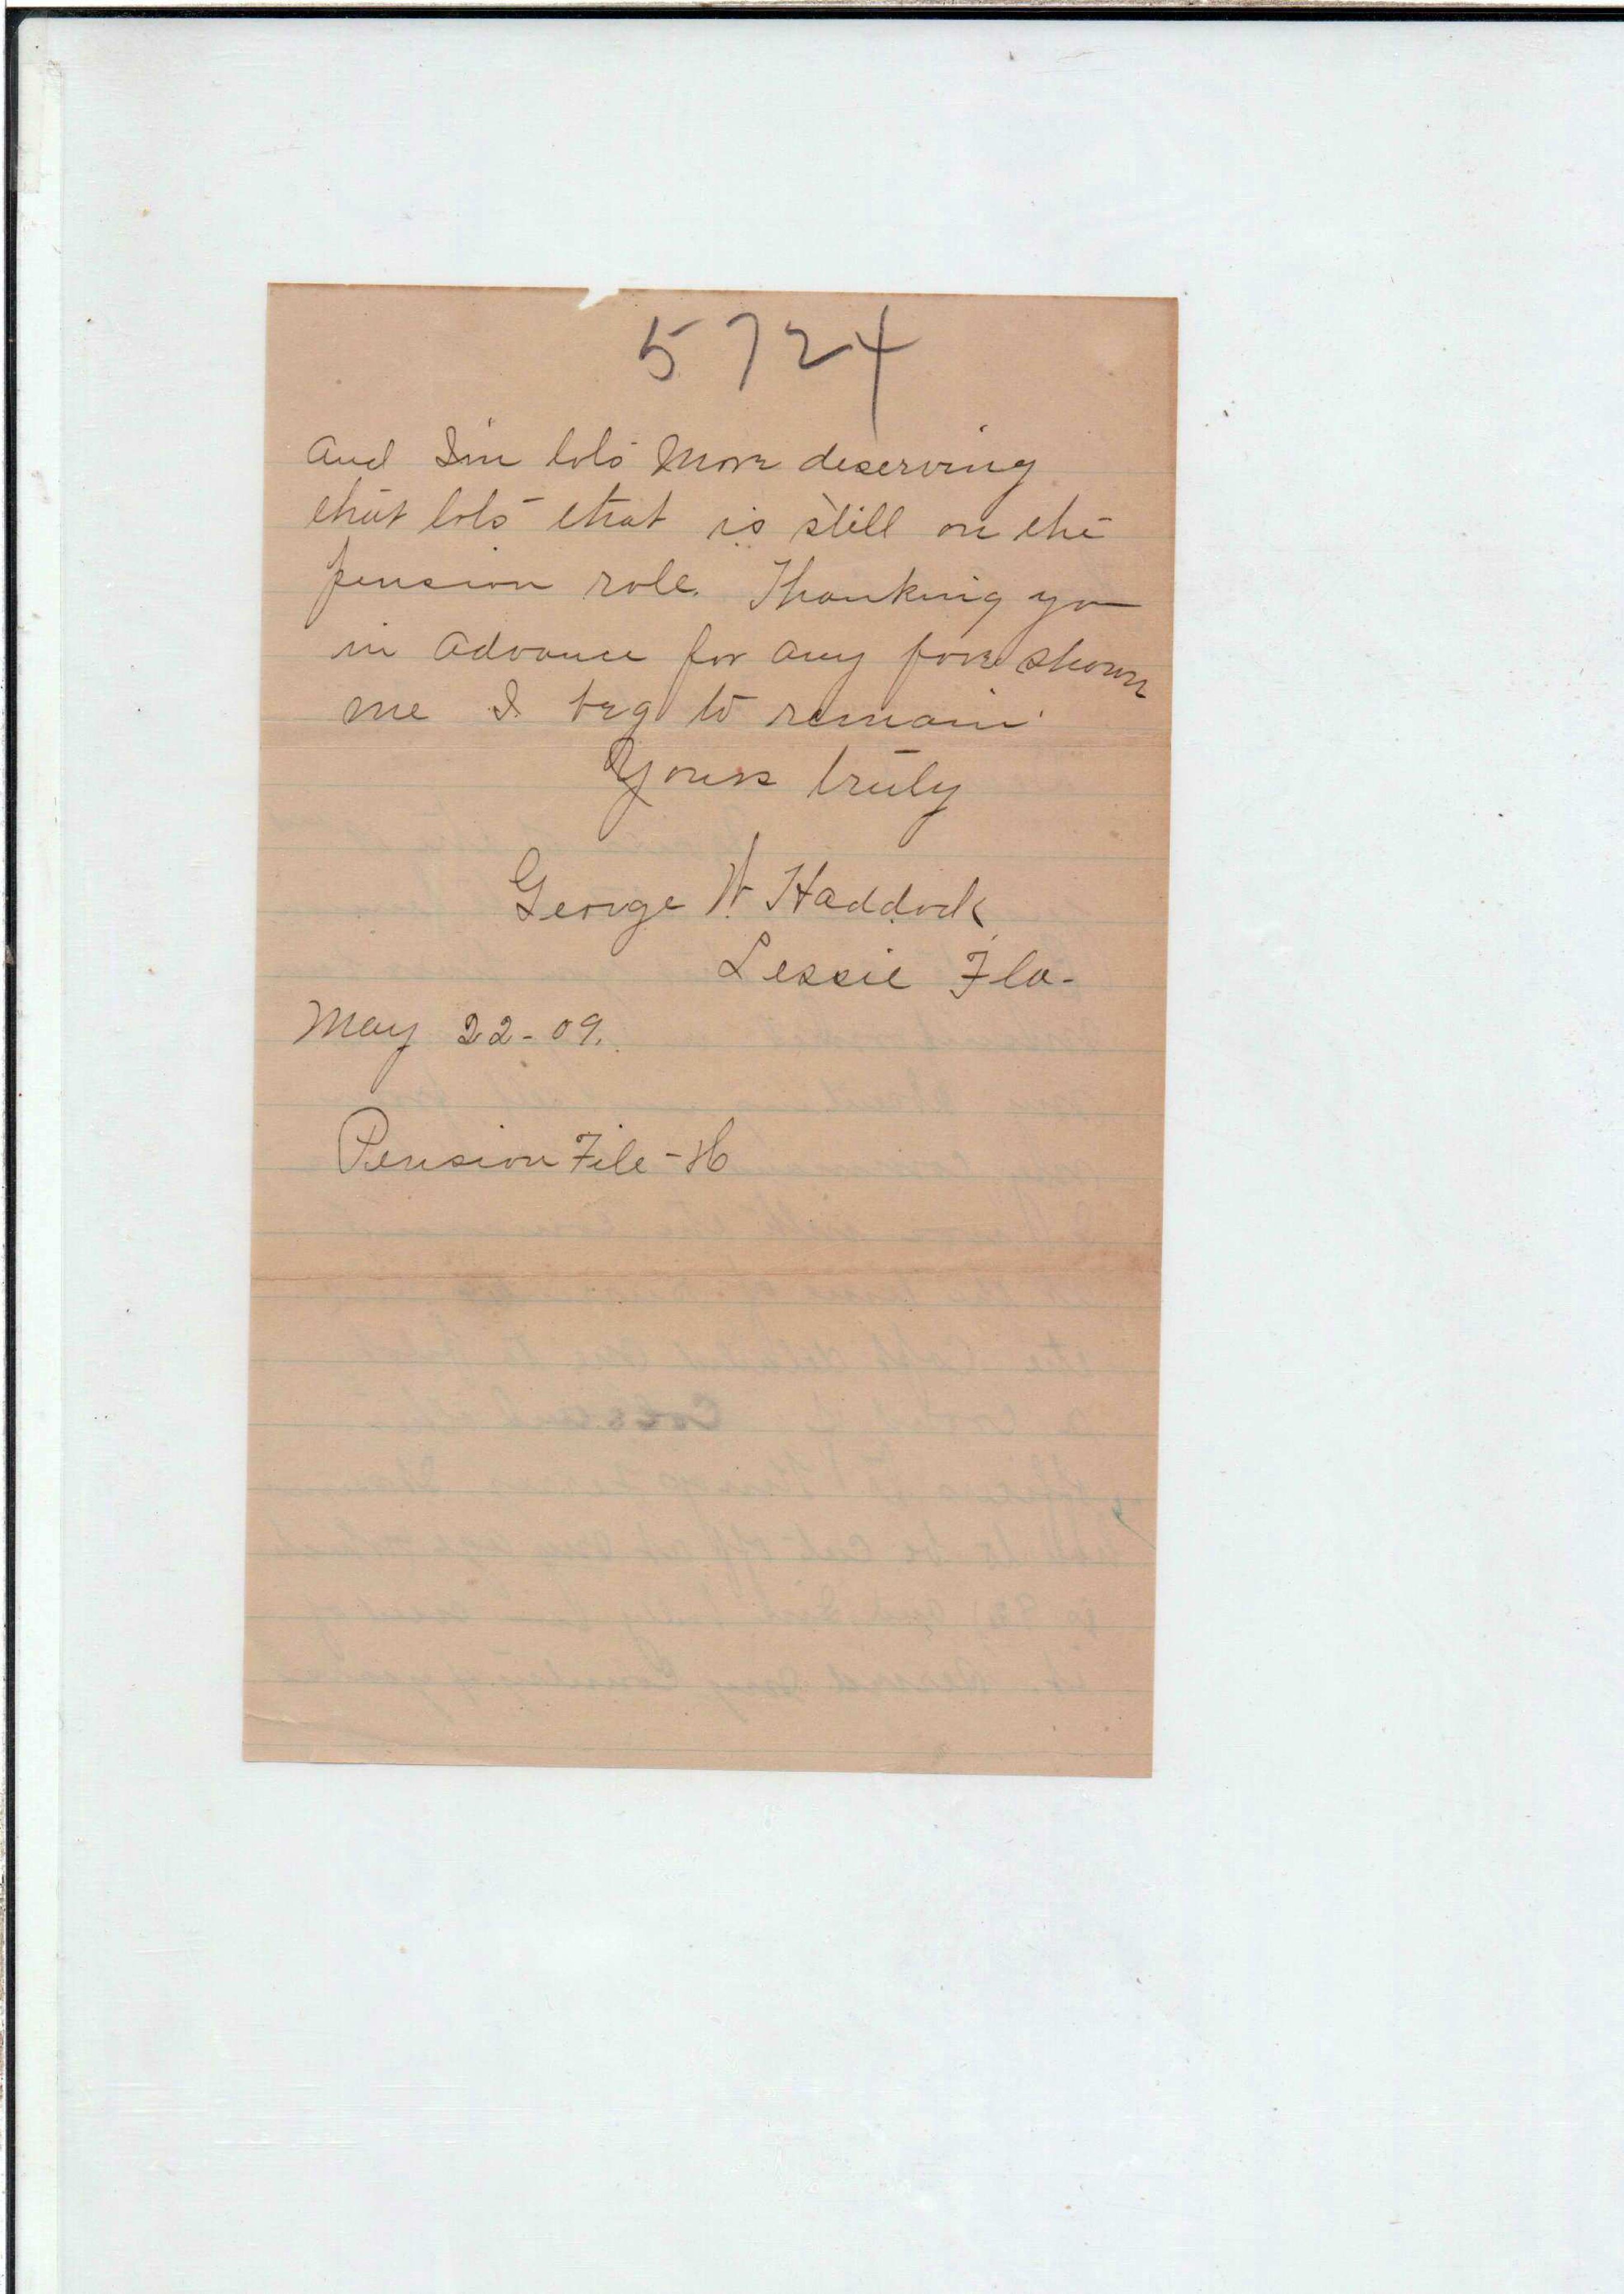 5724
and I'm lots more deserving
that lots that is still on the
pension role. Thanking you
in advance for any favre shown
me I beg to remain
Yours truly
George W. Haddock
Lessie Fla-
May 22-09.
Pension File-H